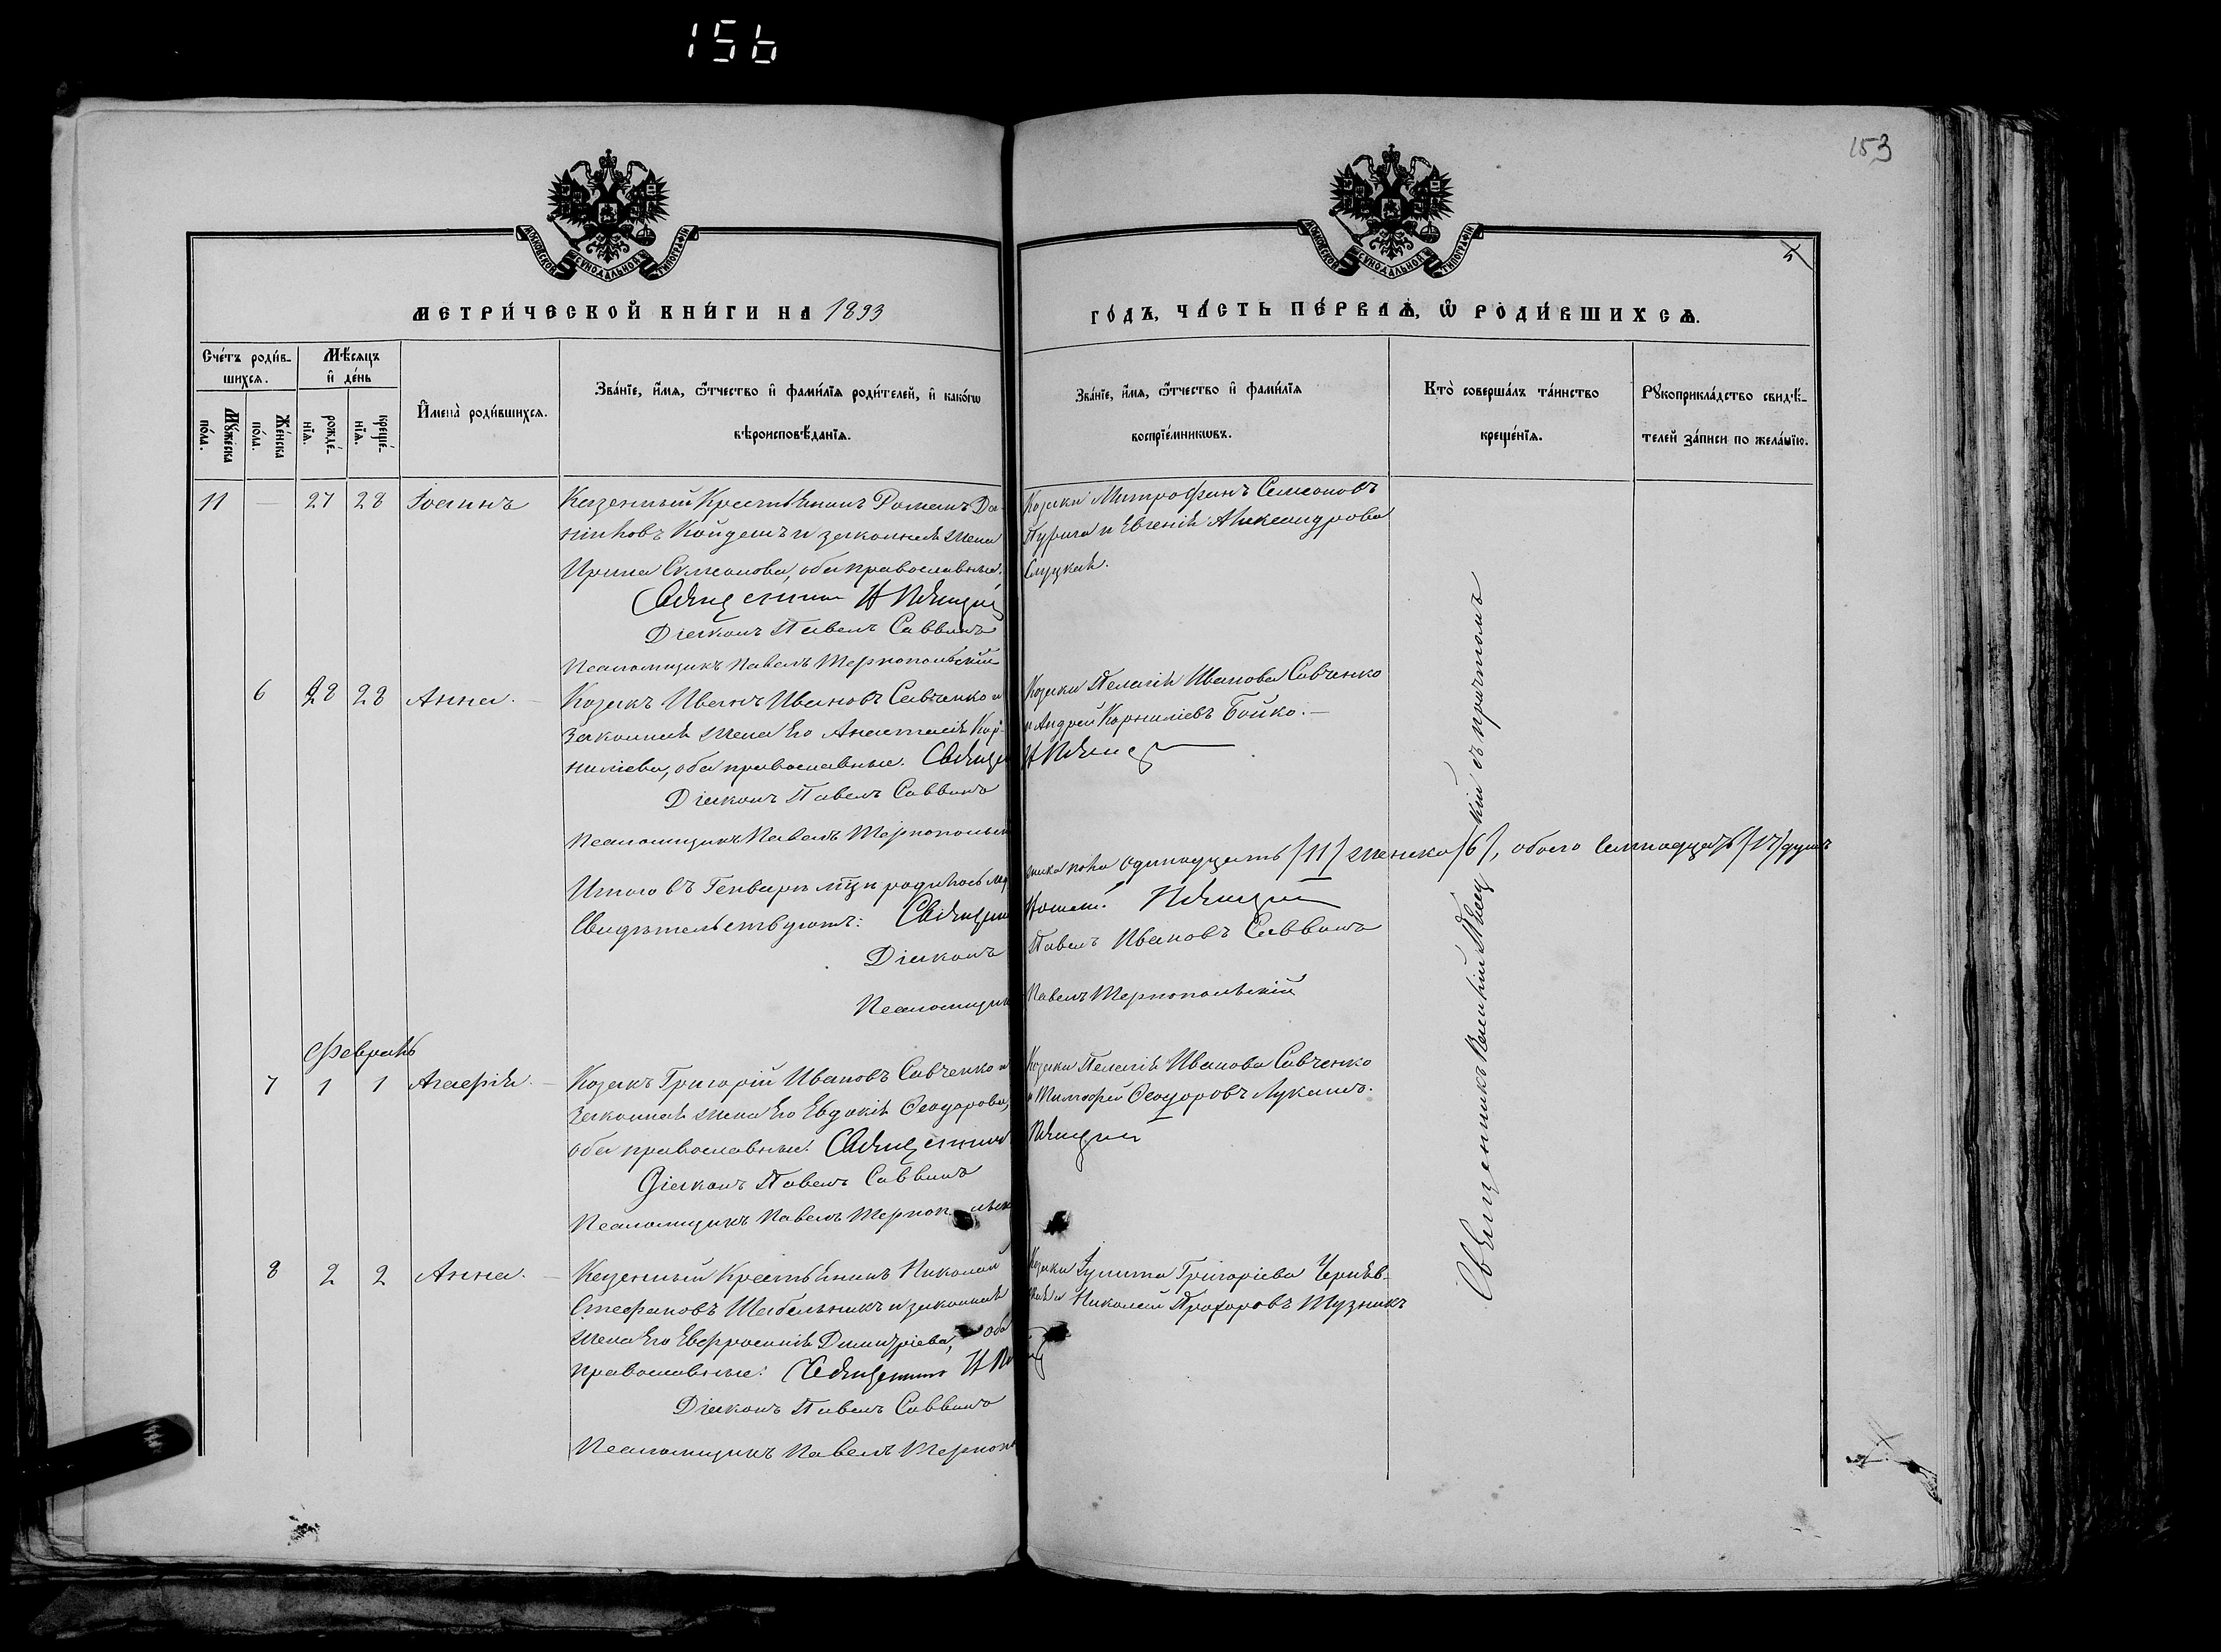 156
153
5
МОСКОВСКОЙ СѴНОДАЛЬНОЙ ТИПОГРАФІИ
МОСКОВСКОЙ СѴНОДАЛЬНОЙ ТИПОГРАФІИ
МЕТРИ́ЧЕСКОЙ КНИ́ГИ НА 1893
ГО́ДЪ, ЧА́СТЬ ПЕ́РВАѦ, Ѡ҆ РОДИ́ВШИХСѦ.
Сче́тъ роди́в-
шихсѧ.
Мꙋ́жеска
по́ла.
Же́нска
по́ла.
Мѣ́сѧцъ
и҆ де́нь
рожде́-
нїѧ.
креще́-
нїѧ.
И҆мена̀ роди́вшихсѧ.
Зва́нїе, и҆́мѧ, ѻ҆́тчество и҆ фами́лїѧ роди́телей, и҆ како́гѡ
вѣроисповѣ́данїѧ.
Зва́нїе, и҆́мѧ, ѻ҆́тчество и҆ фами́лїѧ
воспрїе́мникѡвъ.
Кто̀ соверша́лъ та́инство
креще́нїѧ.
Рꙋкоприкла́дство свидѣ́-
телей за́писи по жела́нїю.
11 — 27 28 Іоаннъ
Казенный Крестьянинъ Романъ Да-
ніиловъ Койдешъ и законная жена
Ирина Симеонова, оба православные.
Священникъ
Діаконъ Павелъ Саввинъ
Псаломщикъ Павелъ Тернопольскій
Козаки Митрофанъ Симеоновъ
Пурига и Евгенія Александрова
Слуцкая.
6 28 28 Анна. —
Козакъ Иванъ Ивановъ Савченко и
законная жена его Анастасія Кор-
ниліева, оба православные. Священ
Діаконъ Павелъ Саввинъ
Псаломщикъ Павелъ Тернопольск
Козаки Пелагія Иванова Савченко
и Андрей Корниліевъ Бойко. —
Итого въ Генварѣ мцѣ родилось му
жска пола одинадцать /11/ женска /6/, обоего семнадцать /17/ душъ
Свидѣтельствуютъ: Священ
Діаконъ Павелъ Ивановъ Саввинъ
Псаломщикъ Павелъ Тернопольскій
Февраль
7 1 1 Агафія. —
Козакъ Григорій Ивановъ Савченко и
законная жена его Евдокія Ѳеодорова,
оба православные. Священникъ
Діаконъ Павелъ Саввинъ
Псаломщикъ Павелъ Тернопольск
Козаки Пелагія Иванова Савченко
и Тимофей Ѳеодоровъ Лукашъ.
8 2 2 Анна. —
Казенный Крестьянинъ Николай
Стефановъ Шабельникъ и законная
жена его Евфросинія Димитріева, оба
православные. Священникъ
Діаконъ Павелъ Саввинъ
Псаломщикъ Павелъ Терноп
Козаки Іулитта Григоріева Черняв-
ская и Николай Прохоровъ Тузникъ
Священникъ
съ причтомъ